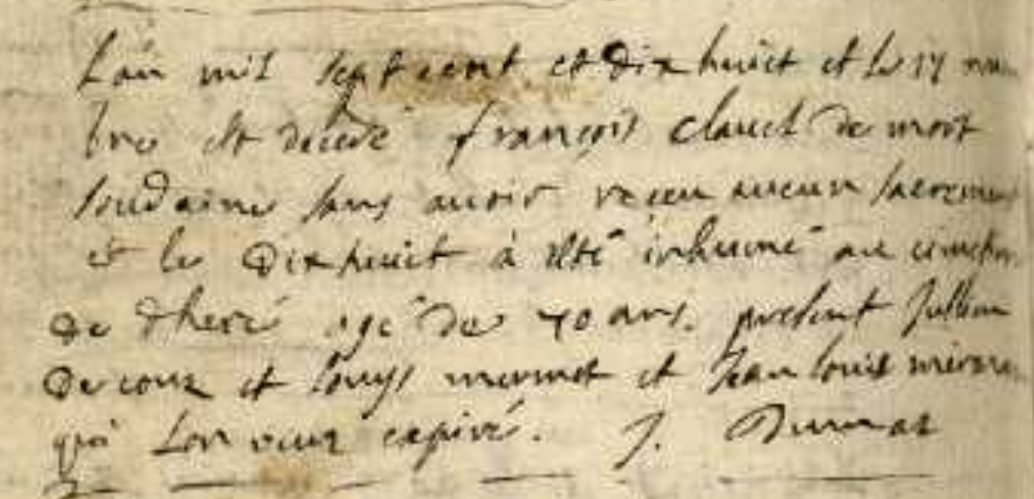 Lan mil sept cent et dix huict et le 17 nou
bre est decedé françois clauel de mort
soudaine sans auoir receu aucun sacremen
et le dixhuict à esté inhumé au cimetier
de theré agé de 70 ans. present Jullien
decoux et louys mermet et Jean louis merme
qui lon veux expiré. J.